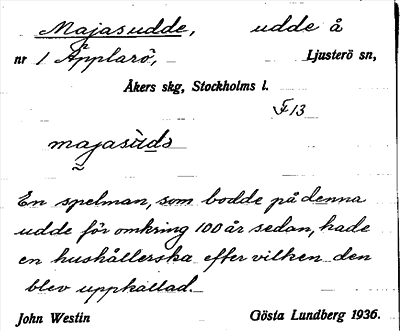 Majasudde, udde å
nr 1 Äpplarö, Ljusterö sn,
Åkers skg, Stockholms l.
F13
majasùdə
En spelman, som bodde på denna
udde för omkring 100 år sedan, hade
en hushållerska efter vilken den
blev uppkallad.
John Westin Gösta Lundberg 1936.